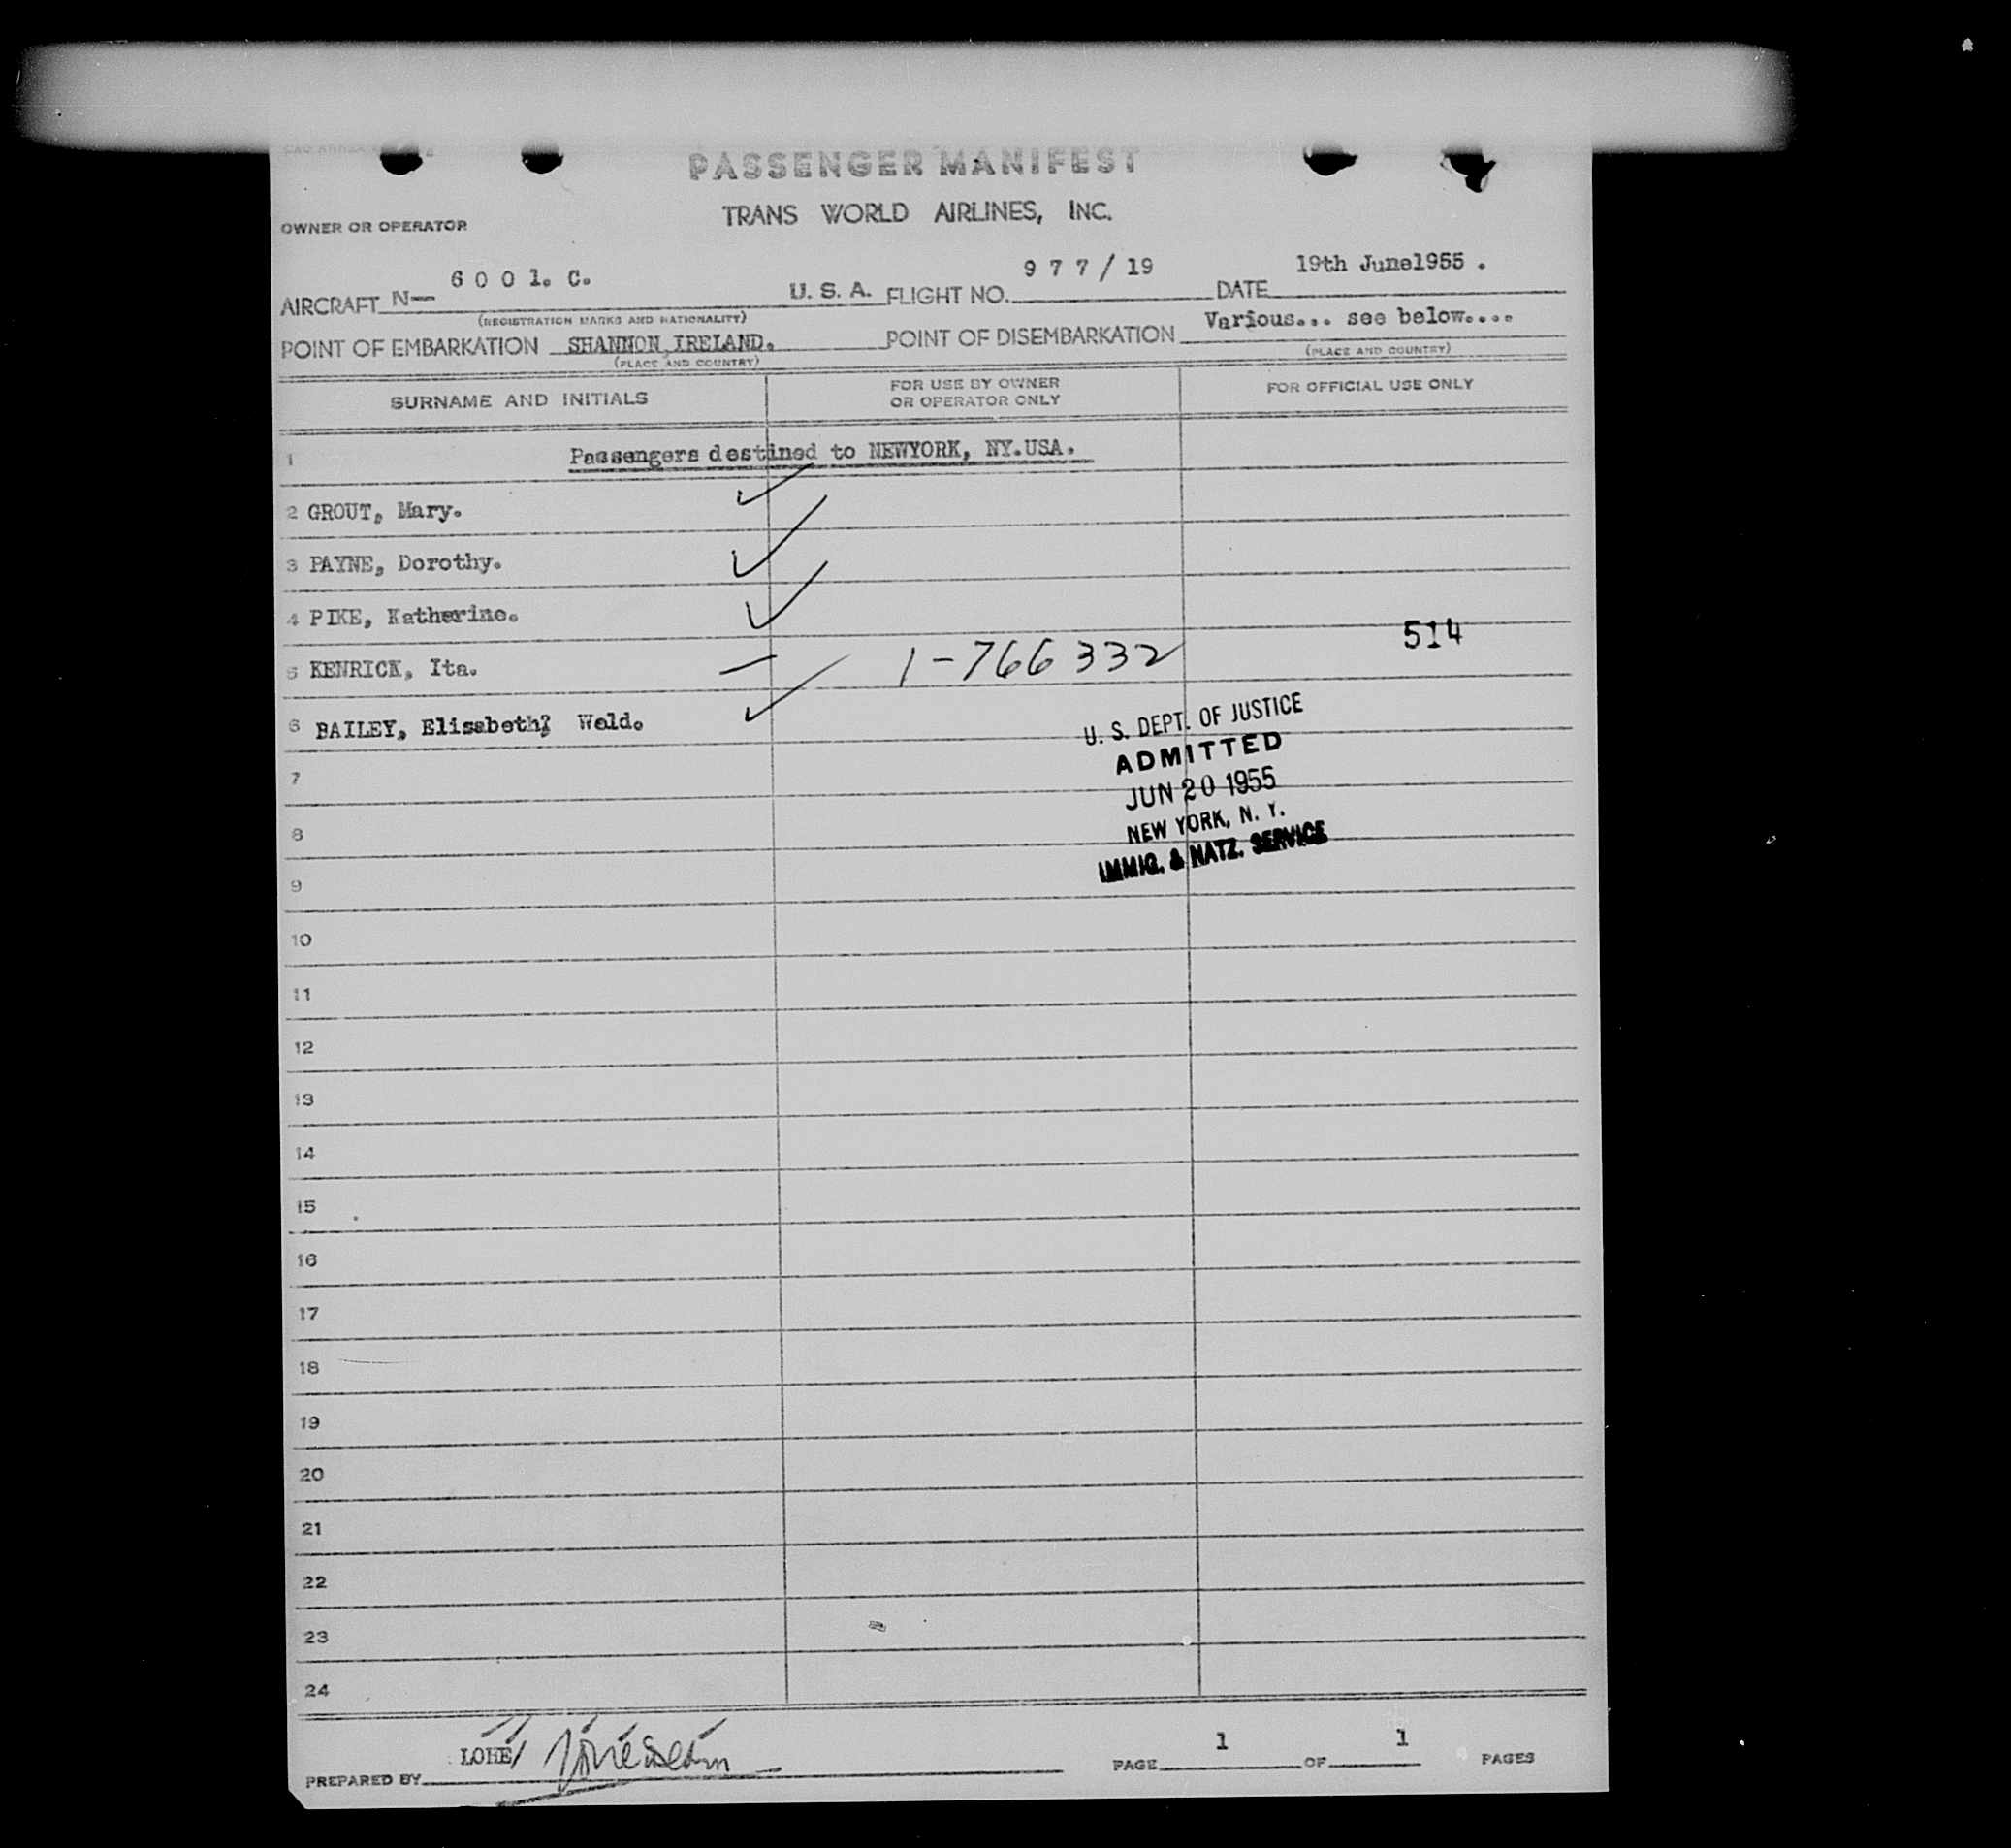 PASSENGER MANIFEST
TRANS WORLD AIRLINES, INC.
OWNER OR OPERATOR
AIRCRAFT N— 6 0 0 1. C. U. S. A. FLIGHT NO. 9 7 7 / 19 DATE 19th June1955 .
(REGISTRATION MARKS AND NATIONALITY)
POINT OF EMBARKATION SHANNON, IRELAND. POINT OF DISEMBARKATION Various... see below....
(PLACE AND COUNTRY) (PLACE AND COUNTRY)
SURNAME AND INITIALS FOR USE BY OWNER OR OPERATOR ONLY FOR OFFICIAL USE ONLY
1 Passengers destined to NEWYORK, NY.USA.
2 GROUT, Mary.
3 PAYNE, Dorothy.
4 PIKE, Katherine.
514
5 KENRICK, Ita. 1-766332
6 BAILEY, Elisabeth; Weld.
U. S. DEPT. OF JUSTICE
ADMITTED
JUN 20 1955
NEW YORK, N. Y.
IMMIG. & NATZ. SERVICE
7
8
9
10
11
12
13
14
15
16
17
18
19
20
21
22
23
24
PREPARED BY LOHE/ PAGE 1 OF 1 PAGES